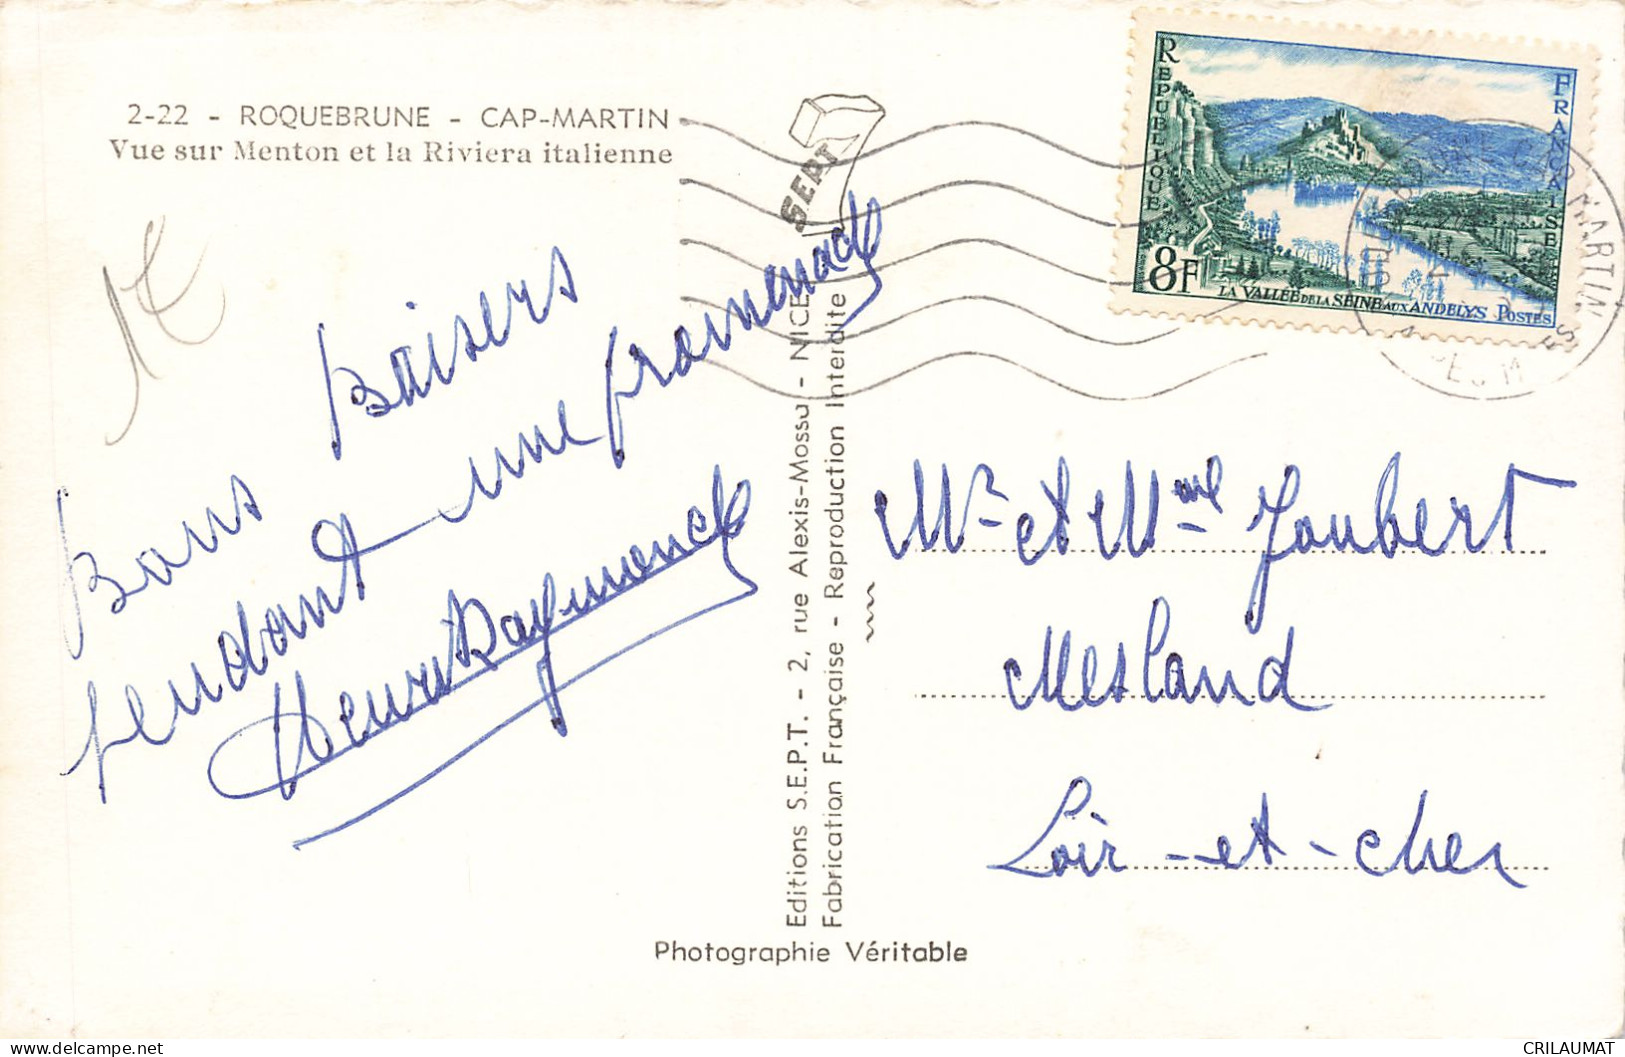 2-22 - ROQUEBRUNE - CAP-MARTIN
Vue sur Menton et la Riviera italienne
SEPT
RÉPUBLIQUE FRANÇAISE
8F
LA VALLÉE DE LA SEINE AUX ANDELYS POSTES
Bons Baisers
pendant une promenade
Henri Raymonde
Editions S.E.P.T. - 2, rue Alexis-Mossa - NICE
Fabrication Française - Reproduction Interdite
Mr et Mme Joubert
Mesland
Loir-et-cher
Photographie Véritable
CRILAUMAT
delcampe.net